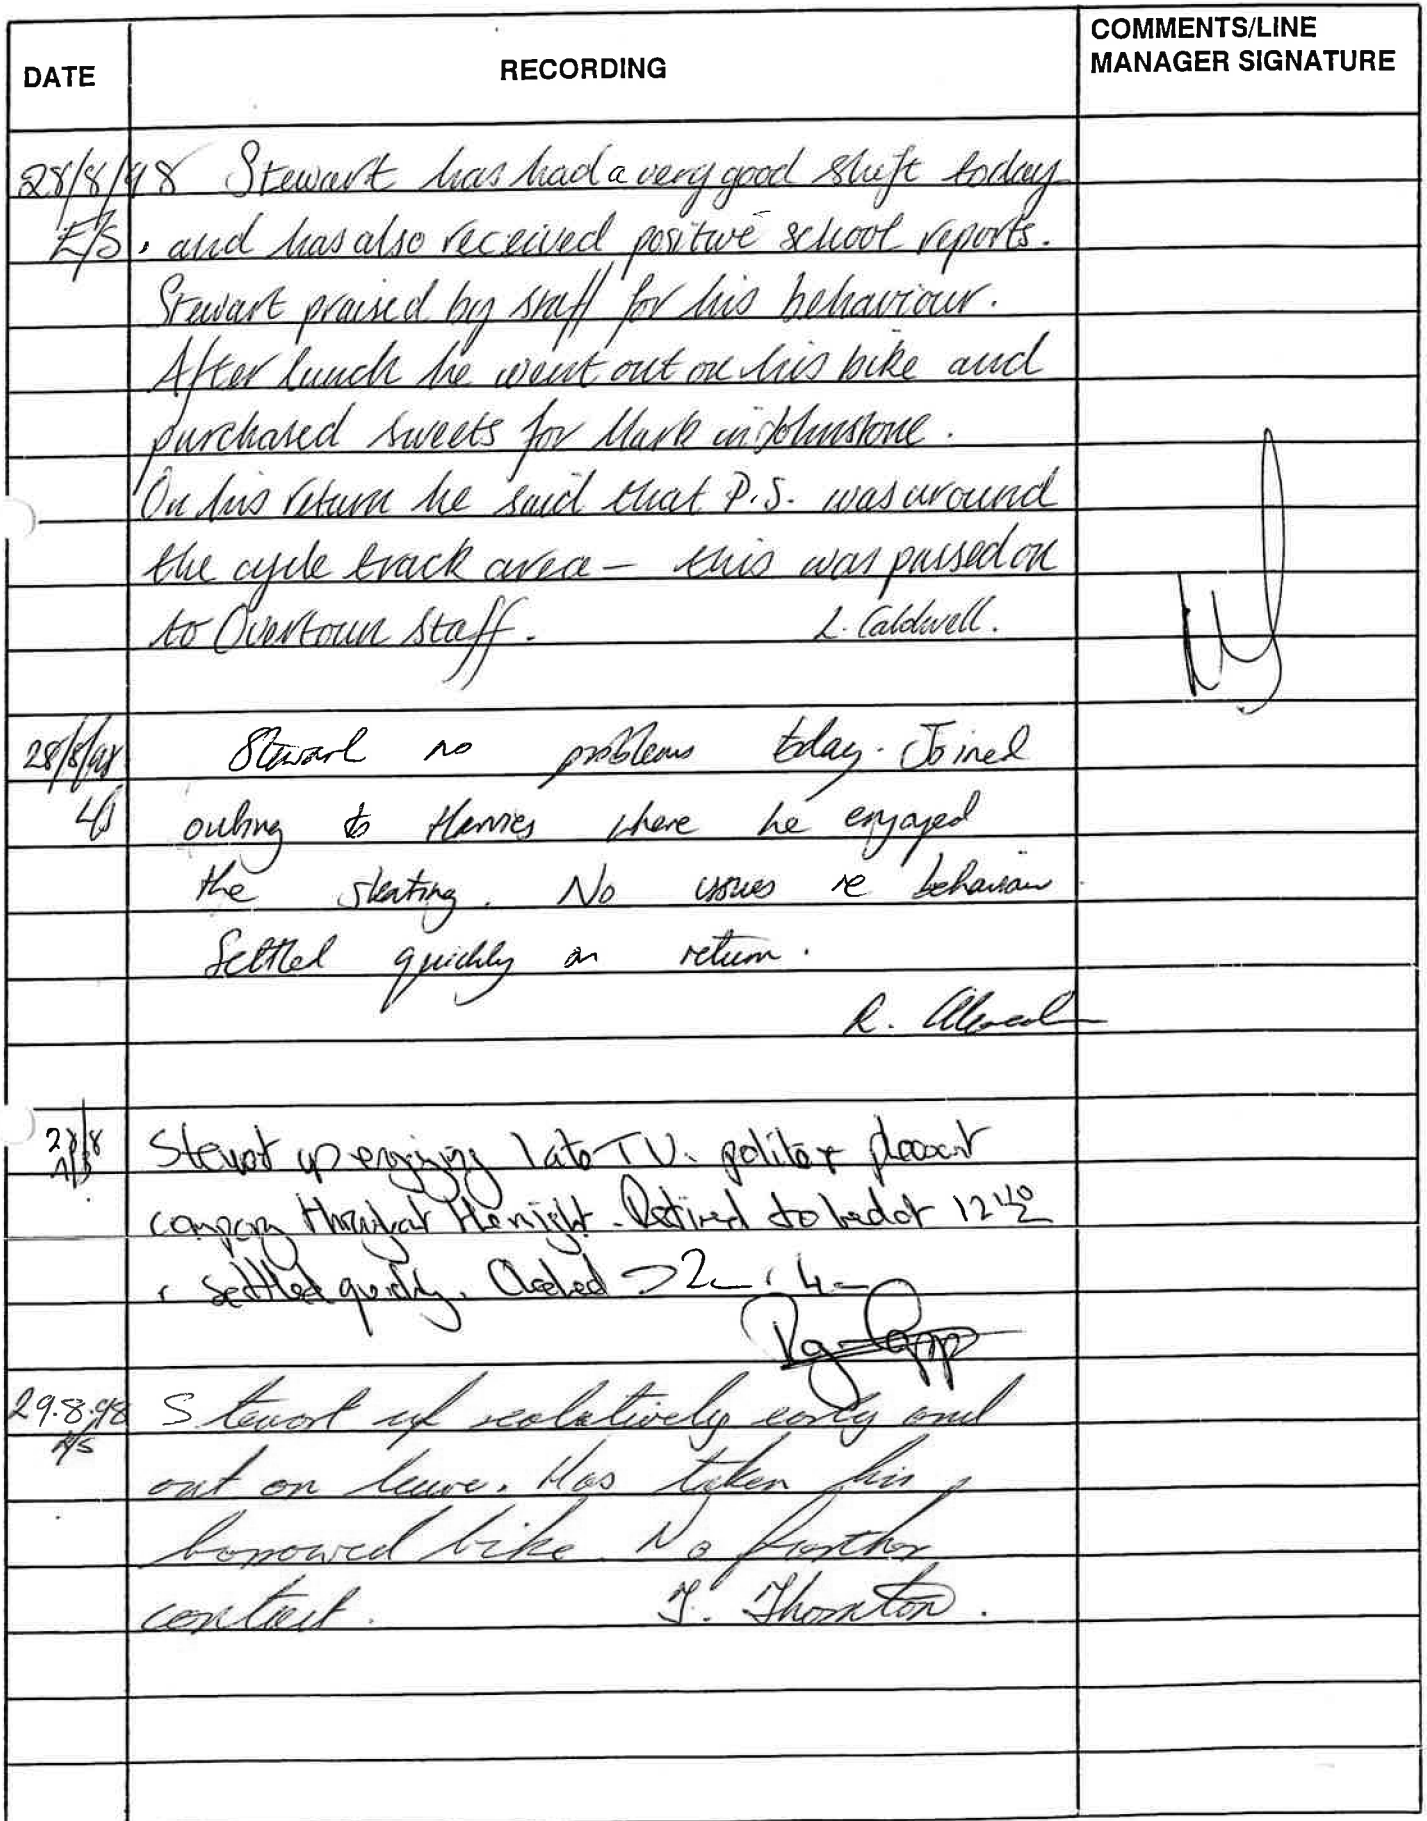 DATE
RECORDING
COMMENTS/LINE
MANAGER SIGNATURE
28/8/98 Stewart has had a very good shift today
E/S. and has also received positive school reports.
Stewart praised by staff for his behaviour.
After lunch he went out on his bike and
purchased sweets for Mark in Johnstone.
On his return he said that P.S. was around
the cycle track area - this was passed on
to Overtoun Staff. L. Caldwell.
28/8/98 Stewart no problems today. Joined
L/S outing to where he enjoyed
the skating. No issues re behaviour
Settled quickly on return.
R.
28/8 Stewart up enjoying late TV. polite + pleasant
N/S
company throughout the night. Retired to bed at 12
+ settled quickly. Checked 2 4
29.8.98 Stewart up relatively early and
out on leave. Has taken his
borrowed bike. No further
contact. T. Thornton.